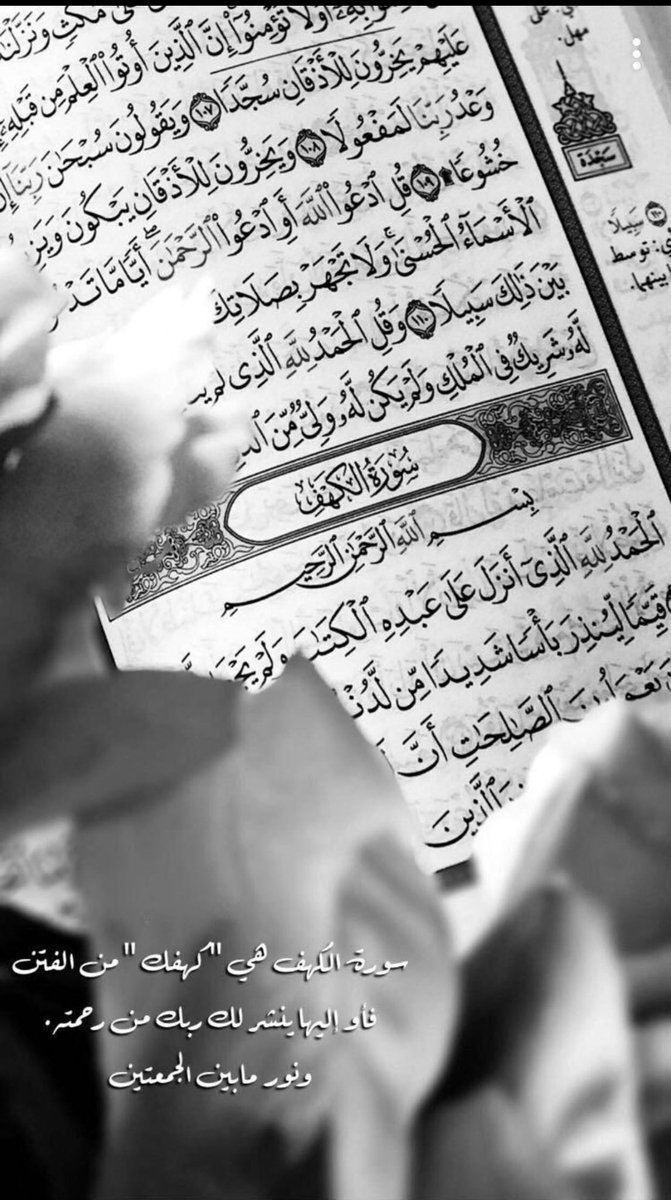 أَوَلَا تُؤْمِنُوٓا۟ إِنَّ ٱلَّذِينَ أُوتُوا۟ ٱلْعِلْمَ مِن قَبْلِهِۦٓ
عَلَيْهِمْ يَخِرُّونَ لِلْأَذْقَانِ سُجَّدًا ١٠٧ وَيَقُولُونَ سُبْحَٰنَ رَبِّنَآ
وَعْدُ رَبِّنَا لَمَفْعُولًا ١٠٨ وَيَخِرُّونَ لِلْأَذْقَانِ يَبْكُونَ
خُشُوعًا ١٠٩ قُلِ ٱدْعُوا۟ ٱللَّهَ أَوِ ٱدْعُوا۟ ٱلرَّحْمَٰنَ أَيًّا مَّا
ٱلْأَسْمَآءُ ٱلْحُسْنَىٰ وَلَا تَجْهَرْ بِصَلَاتِكَ
بَيْنَ ذَٰلِكَ سَبِيلًا ١١٠ وَقُلِ ٱلْحَمْدُ لِلَّهِ ٱلَّذِى لَمْ
لَّهُۥ شَرِيكٌ فِى ٱلْمُلْكِ وَلَمْ يَكُن لَّهُۥ وَلِىٌّ مِّنَ
سُورَةُ الكَهْفِ
بِسْمِ ٱللَّهِ ٱلرَّحْمَٰنِ ٱلرَّحِيمِ
ٱلْحَمْدُ لِلَّهِ ٱلَّذِىٓ أَنزَلَ عَلَىٰ عَبْدِهِ ٱلْكِتَٰبَ وَلَمْ
قَيِّمًا لِّيُنذِرَ بَأْسًا شَدِيدًا مِّن لَّدُنْ
ٱلصَّٰلِحَٰتِ أَنَّ
ٱلَّذِينَ
سَجْدَة
سَبِيلًا
توسط
بينهما.
سورة الكهف هي "كهفك" من الفتن
فأو إليها ينشر لك ربك من رحمته.
ونور مابين الجمعتين